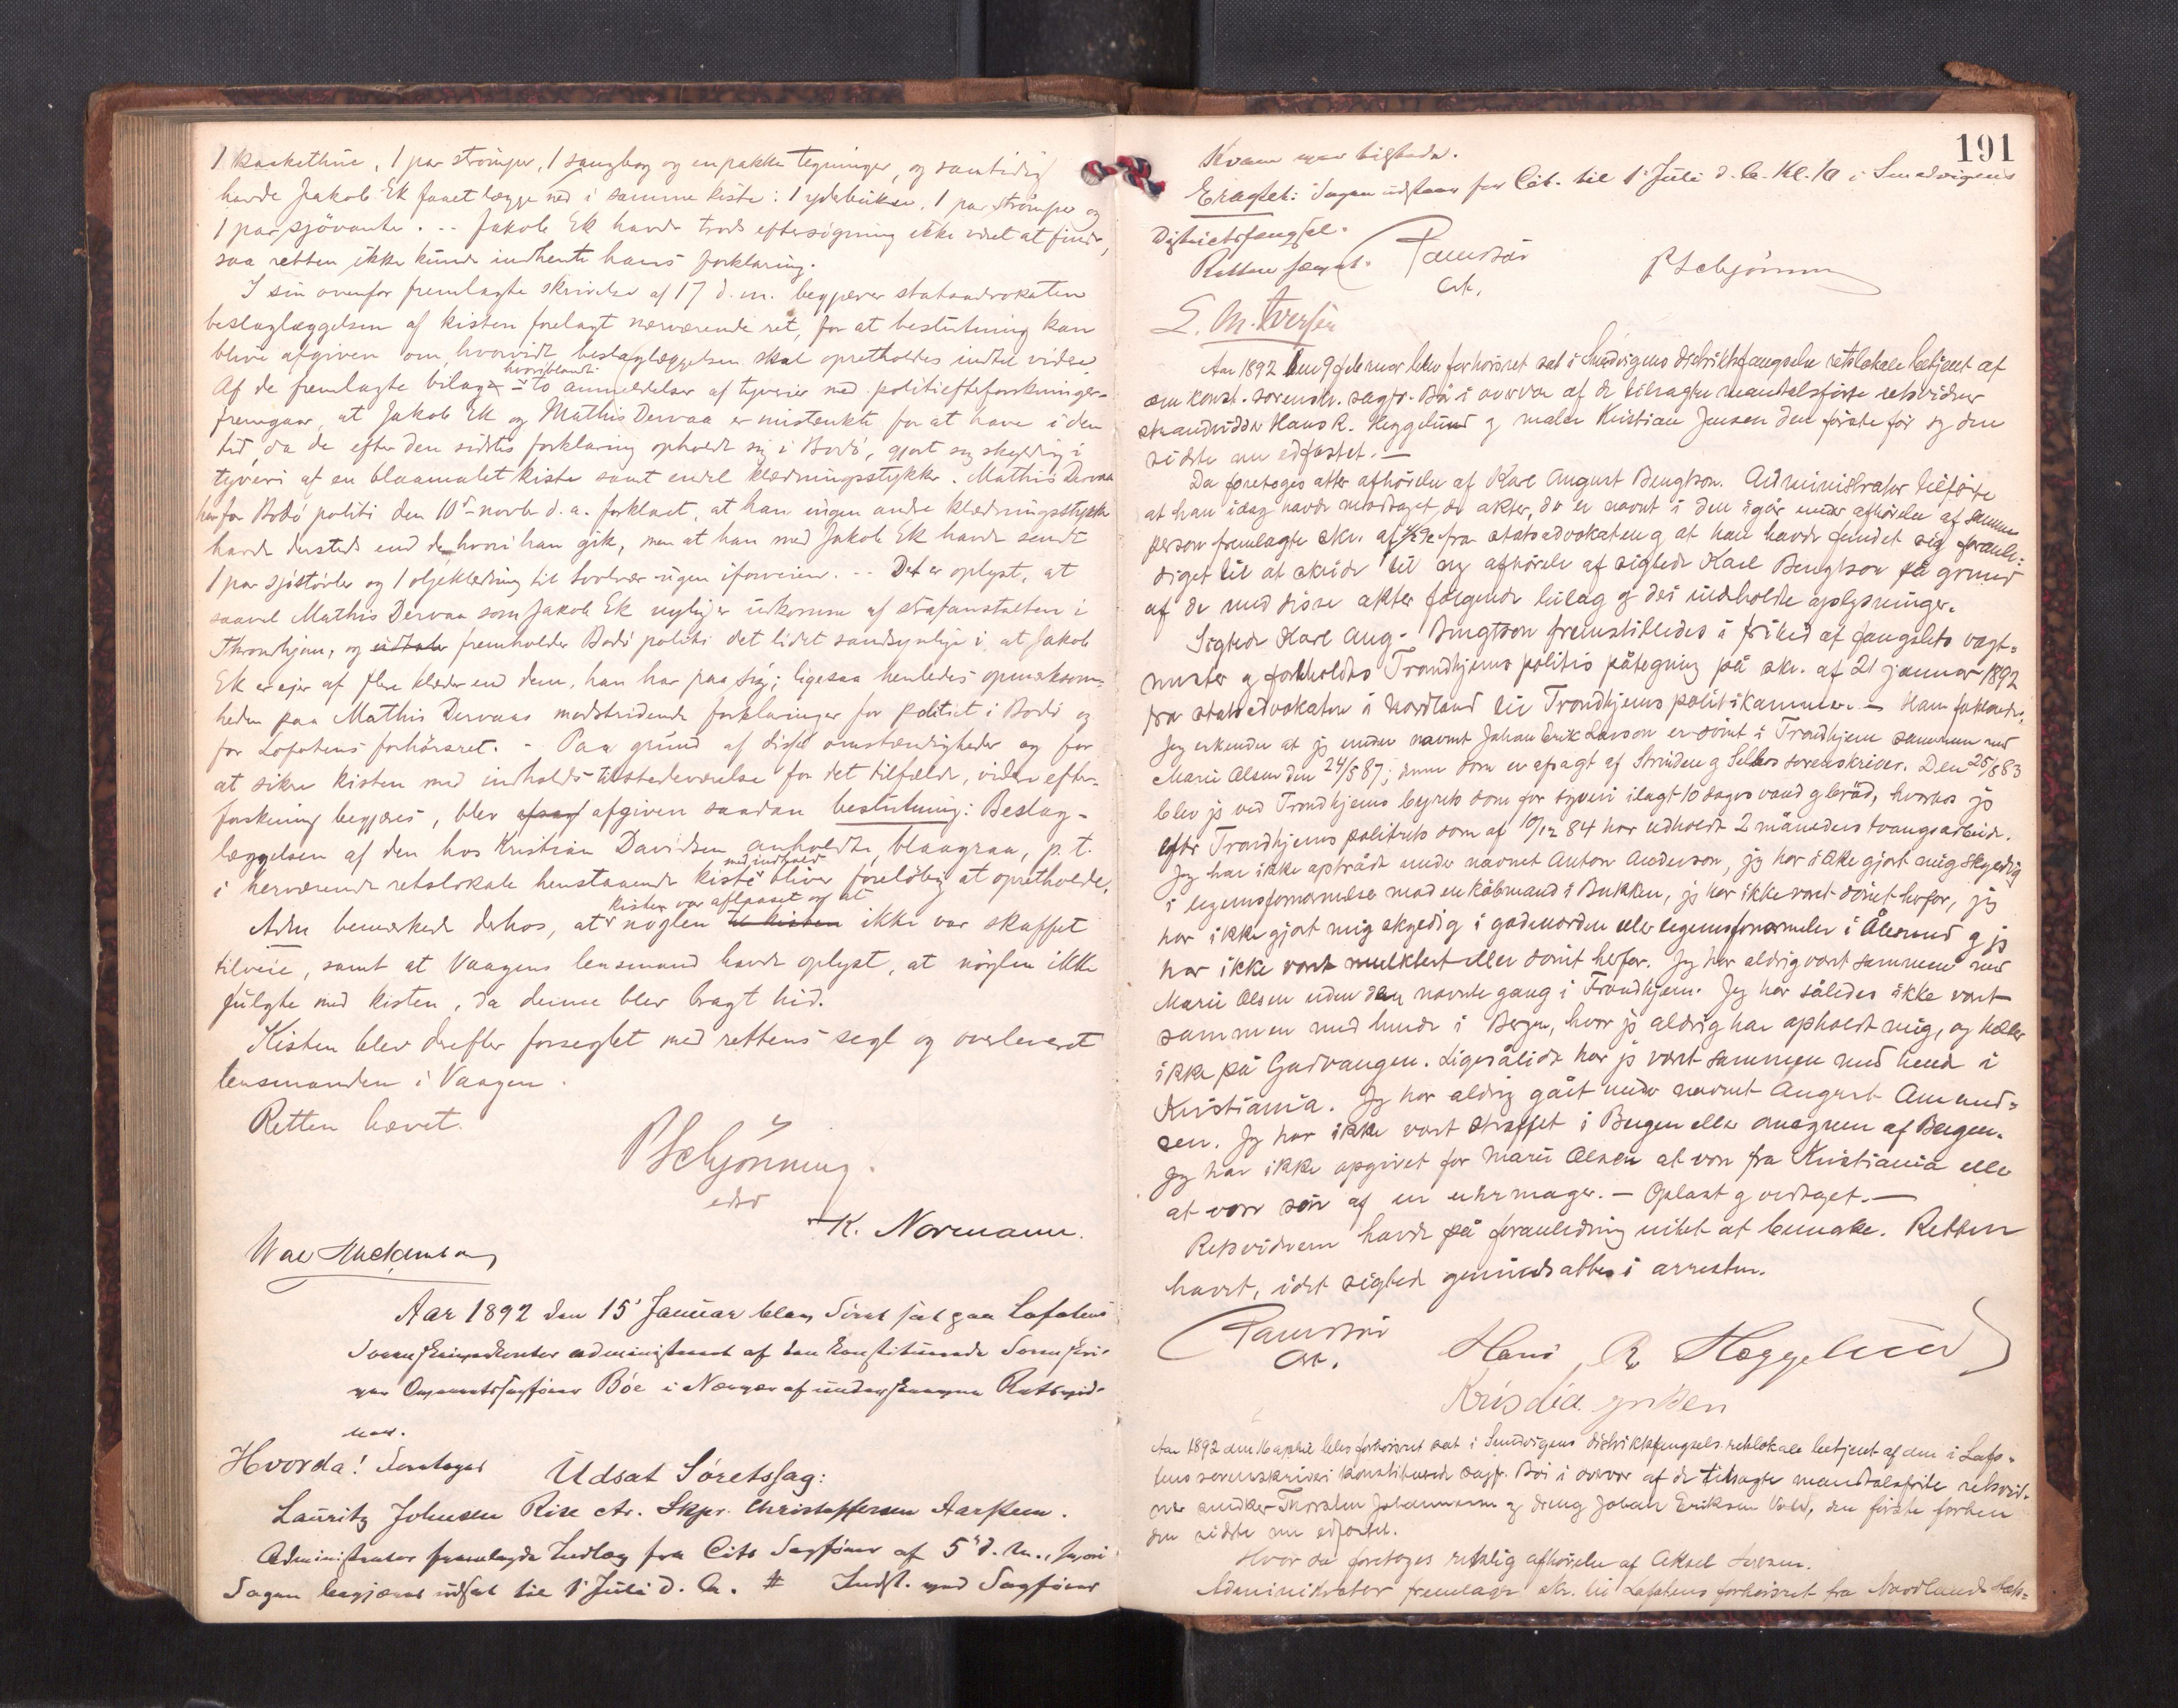 1 kaskethue, 1 par strömper, 1 sangbog og en pakke tegninger, og samtidig
havde Jakob Ek faaet lægge ned i samme kiste: 1 yderbukse, 1 par strömper og
1 par sjövanter. -- Jakob Ek havde trods eftersögning ikke været at finde,
saa retten ikke kunde indhente hans forklaring.
I sin ovenfor fremlagte skrivelse af 17 d.m. begjærer statsadvokaten
beslaglæggelsen af kisten forelagt nærværende ret, for at beslutning kan
blive afgiven om, hvorvidt beslaglæggelsen skal opretholdes indtil videre.
Af de fremlagte bilage hvoriblandt to anmeldelser af tyverier med politiefterforskninger
fremgaar, at Jakob Ek og Mathis Dervaa er mistænkte for at have i den
tid, da de efter den sidstes forklaring opholdt sig i Bodö, gjort sig skyldig i
tyveri af en blaamalet kiste samt endel klædningsstykker. Mathis Dervaa
har for Bodö politi den 10 novbr d.a. forklaret, at han ingen andre klædningsstykker
havde dersteds end de hvori han gik, men at han med Jakob Ek havde sendt
1 par sjöstövler og 1 oljeklædning til Svolvær ugen iforveien. -- Det er oplyst, at
saavel Mathis Dervaa som Jakob Ek nylig er udkomne af strafanstalten i
Throndhjem, og udtaler fremholder Bodö politi det lidet sandsynlige i, at Jakob
Ek er ejer af flere klæder end dem, han har paa sig; ligesaa henledes opmærksom-
heden paa Mathis Dervaas modstridende forklaringer for politiet i Bodö og
for Lofotens forhörsret. - Paa grund af disse omstændigheder og for
at sikre kisten med indholds tilstedeværelse for det tilfælde, videre efter-
forskning begjæres, blev afsagt afgiven saadan beslutning: Beslag-
læggelsen af den hos Kristian Davidsen anholdte, blaagraa, p.t.
i herværende retslokale henstaaende kiste med indhold bliver foreløbig at opretholde.
Adm bemærkede derhos, at kisten var aflaaset og at nøglen til kisten ikke var skaffet
tilveie, samt at Vaagens lensmand havde oplyst, at nöglen ikke
fulgte med kisten, da denne blev bragt hid.
Kisten blev derefter forseglet med rettens segl og overleveret
lensmanden i Vaagen.
Retten hævet.
P Schjönning.
edsv
K. Normann.
Aar 1892 den 15 Januar blev Söret sat paa Lofotens
Sorenskriverkontor administreret af den konstituerede Sorenskri-
ver Overretssagförer Böe i Nærvær af underskrevne Retsvid-
ner.
Hvorda! Foretoges Udsat Søretssag:
Lauritz Johnsen Rise ctr. Skpr. Christoffersen Aarsteen.
Administrator fremlagde Indlæg fra Cits Sagförer af 5 d. M., hvori
Sagen begjæres udsat til 1 Juli d. A. # Indst. ved Sagförer
191
Kvam var tilstede.
Eragtet: Sagen udstaar for Cit. til 1 Juli d. A. Kl. 10 i Smedvigens
Districtsfængsel.
Retten hævet.
Cst.
P Schjönning
L. M. Iversen
Aar 1892 den 9 februar blev forhörsret sat i Smedvigens distriktsfængsels retslokale betjent af
den konst. sorenskr. sagfr. Bö i overvær af de tilsagte mandtalsförte retsvidner
strandsidder Hans R. Heggelund og maler Kristian Jensen den förste för og den
sidste nu edfæstet. —
Da foretoges atter afhörelse af Karl August Bengtson. Administrator tilförte
at han idag havde modtaget de akter, der er nævnt i den igår under afhörelse af samme
person fremlagte skr. af fra statsadvokaten og at han havde fundet sig foranle-
diget til at skride til ny afhörelse af sigtede Karl Bengtson på grund
af de med disse akter fölgende bilag og dei indholdte oplysninger.
Sigtede Karl Aug. Bengtson fremstilledes i frihed af fængslets vagt-
mester og foreholdtes Trondhjems politis påtegning på skr. af 21 januar 1892
fra statsadvokaten i Nordland til Trondhjems politikammer. — Han forklarede:
Jeg erkender at jeg under navnet Johan Erik Larson er dömt i Trondhjem sammen med
Marie Olsen den 24/5 87; dom som er afsagt af Strinden og Selbo sorenskriver. Den 25/8 83
blev jeg ved Trondhjems byrets dom for tyveri ilagt 10 dages vand og bröd, hvorhos jeg
efter Trondhjems politirets dom af 10/12 84 har udholdt 2 måneders tvangsarbeide.
Jeg har ikke optrådt under navnet Anton Anderson, jeg har ikke gjort mig skyldig
i legemsfornærmelse mod en købmand i Bukken, jeg har ikke været dömt herfor, jeg
har ikke gjort mig skyldig i gadeuorden eller legemsfornærmelse i Ålesund og jeg
har ikke været mulkteret eller dömt herfor. Jeg har aldrig været sammen med
Marie Olsen uden den nævnte gang i Trondhjem. Jeg har således ikke været
sammen med hende i Bergen, hvor jeg aldrig har opholdt mig, og heller
ikke på Gudvangen. Ligesålidt har jeg været sammen med hende i
Kristiania. Jeg har aldrig gået under navnet August Amund-
sen. Jeg har ikke været straffet i Bergen eller omegnen af Bergen.
Jeg har ikke opgivet for Marie Olsen at være fra Kristiania eller
at være sön af en uhrmager. — Oplæst og vedtaget. —
Retsvidnerne havde på foranledning intet at bemærke. Retten
hævet, idet sigtede gjenindsattes i arresten.
Cst.
Hans R Heggelund
Aar 1892 den 16 april blev forhörsret sat i Smedvigens distriktsfængsels retslokale betjent af den i Lofo-
tens sorenskriveri konstituerede sagfr. Böi i overvær af de tilsagte mandtalsförte retsvid-
ner snedker Thorsten Johannesen og dreng Johan Eriksen Vold, den förste forhen
den sidste nu edfæstet.
Hvor da foretoges retslig afhörelse af Aksel Iversen.
Administrator fremlagde skr. til Lofotens forhörsret fra Nordlands stats-